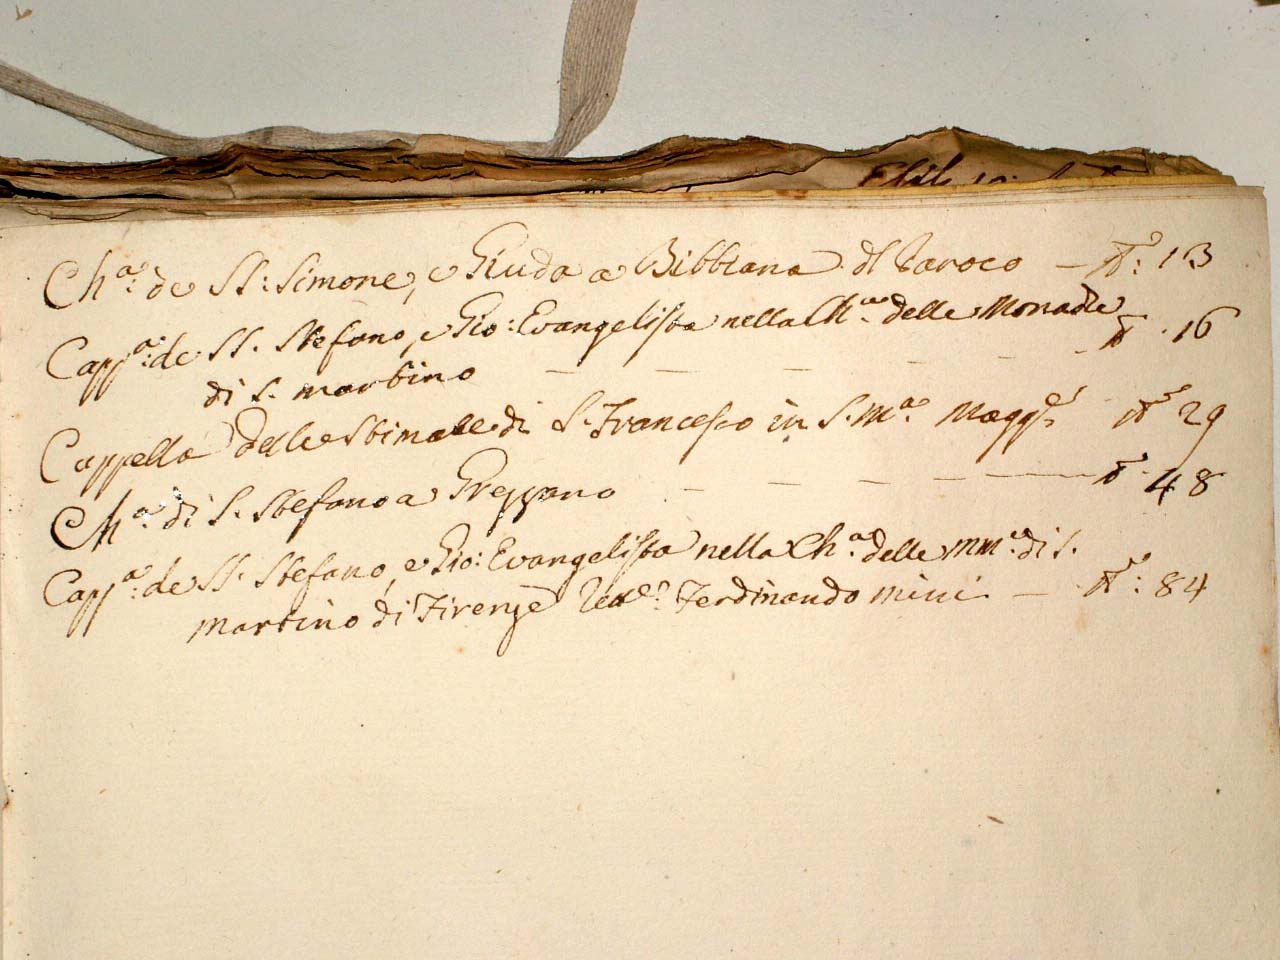 Ch.ª de SS: Simone, e Giuda a Bibbiana dl Paroco — N.º: 13
Capp.ª: de SS. Stefano, e Gio: Evangelista nella Ch.ª delle Monache
di S. Martino — — — — — N.º 16
Cappella delle Stimate di S. Francesco in S. M.ª Magg.e N.º 29
Ch.ª di S. Stefano a Grezzano — — — — — N.º 48
Capp.ª: de SS. Stefano, e Gio: Evangelista nella Ch.ª delle MM.ª di S.
Martino di Firenze Ferdinando Mini — N.º: 84